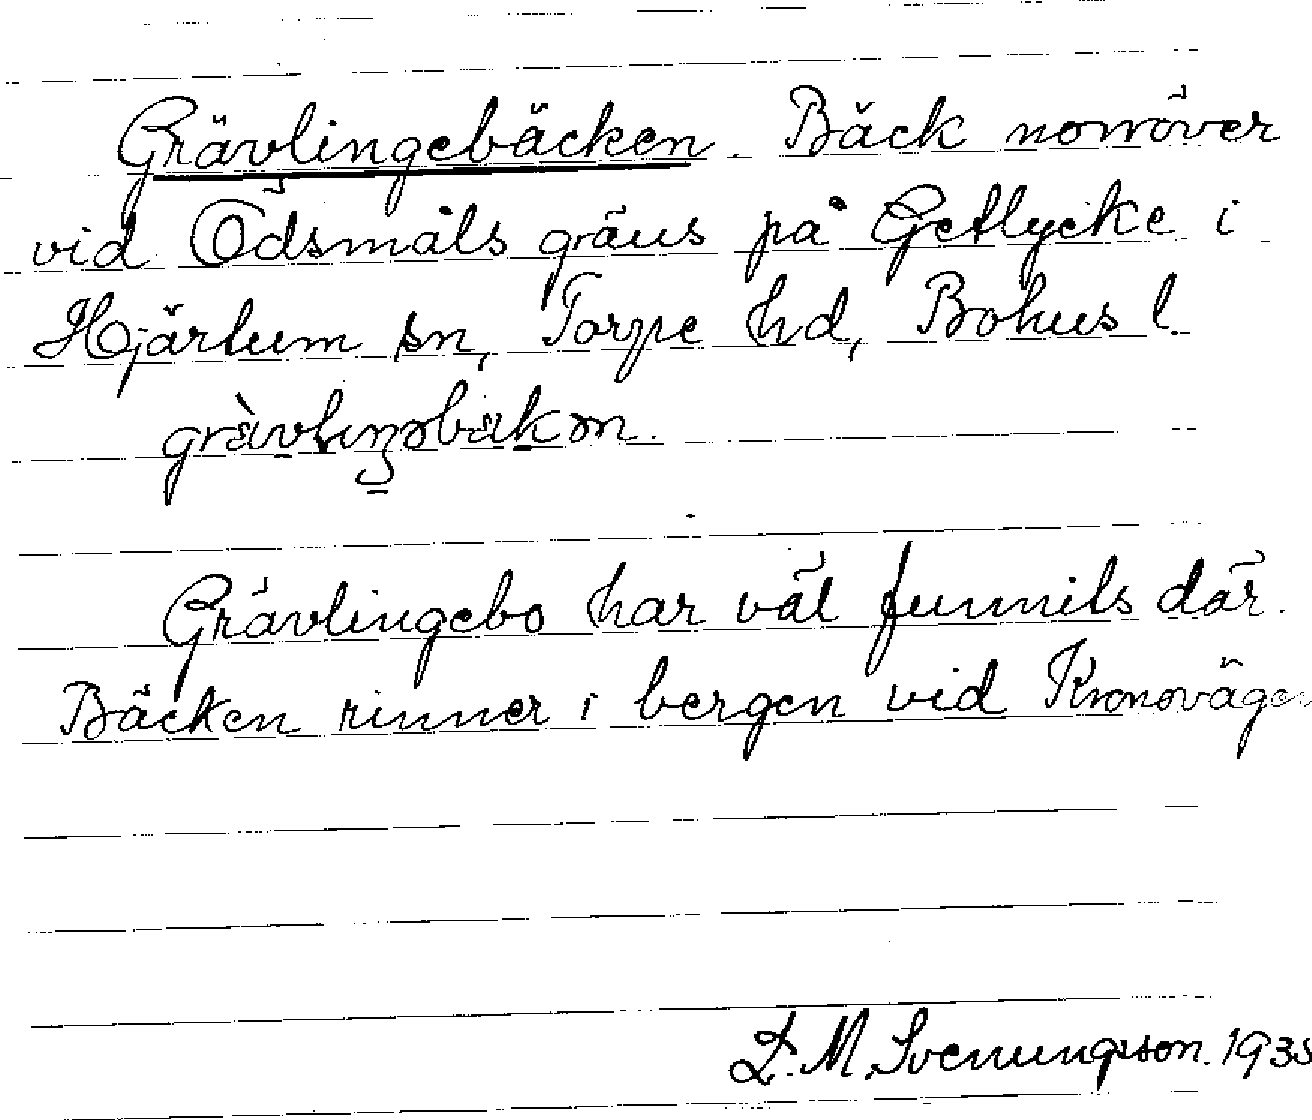 Grävlingebäcken. Bäck norröver
vid Ödsmåls gräns på Getlycke i
Hjärtum sn, Torpe hd, Bohus l.
grävlingəbäkən.
Grävlingebo har väl funnits där.
Bäcken rinner i bergen vid Kronovägen
L. M. Svenungsson. 1935